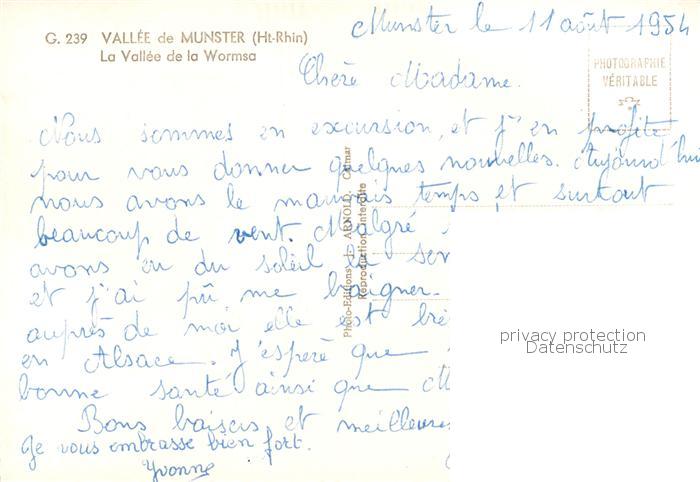 G. 239 VALLÉE de MUNSTER (Ht-Rhin)
La Vallée de la Wormsa
Munster le 11 août 1954
PHOTOGRAPHIE
VÉRITABLE
Chère Madame.
Nous sommes en excursion, et j'en profite
pour vous donner quelques nouvelles. Aujourd'hui
nous avons le mauvais temps et surtout
beaucoup de vent. Malgré
avons eu du soleil la
et j'ai pû me baigner.
auprès de moi elle est
en Alsace. J'espère que
bonne santé ainsi que
Bons baisers et meilleures
Je vous embrasse bien fort.
Yvonne
Photo-Editions J. ARNOLD, Colmar
Reproduction interdite
privacy protection
Datenschutz